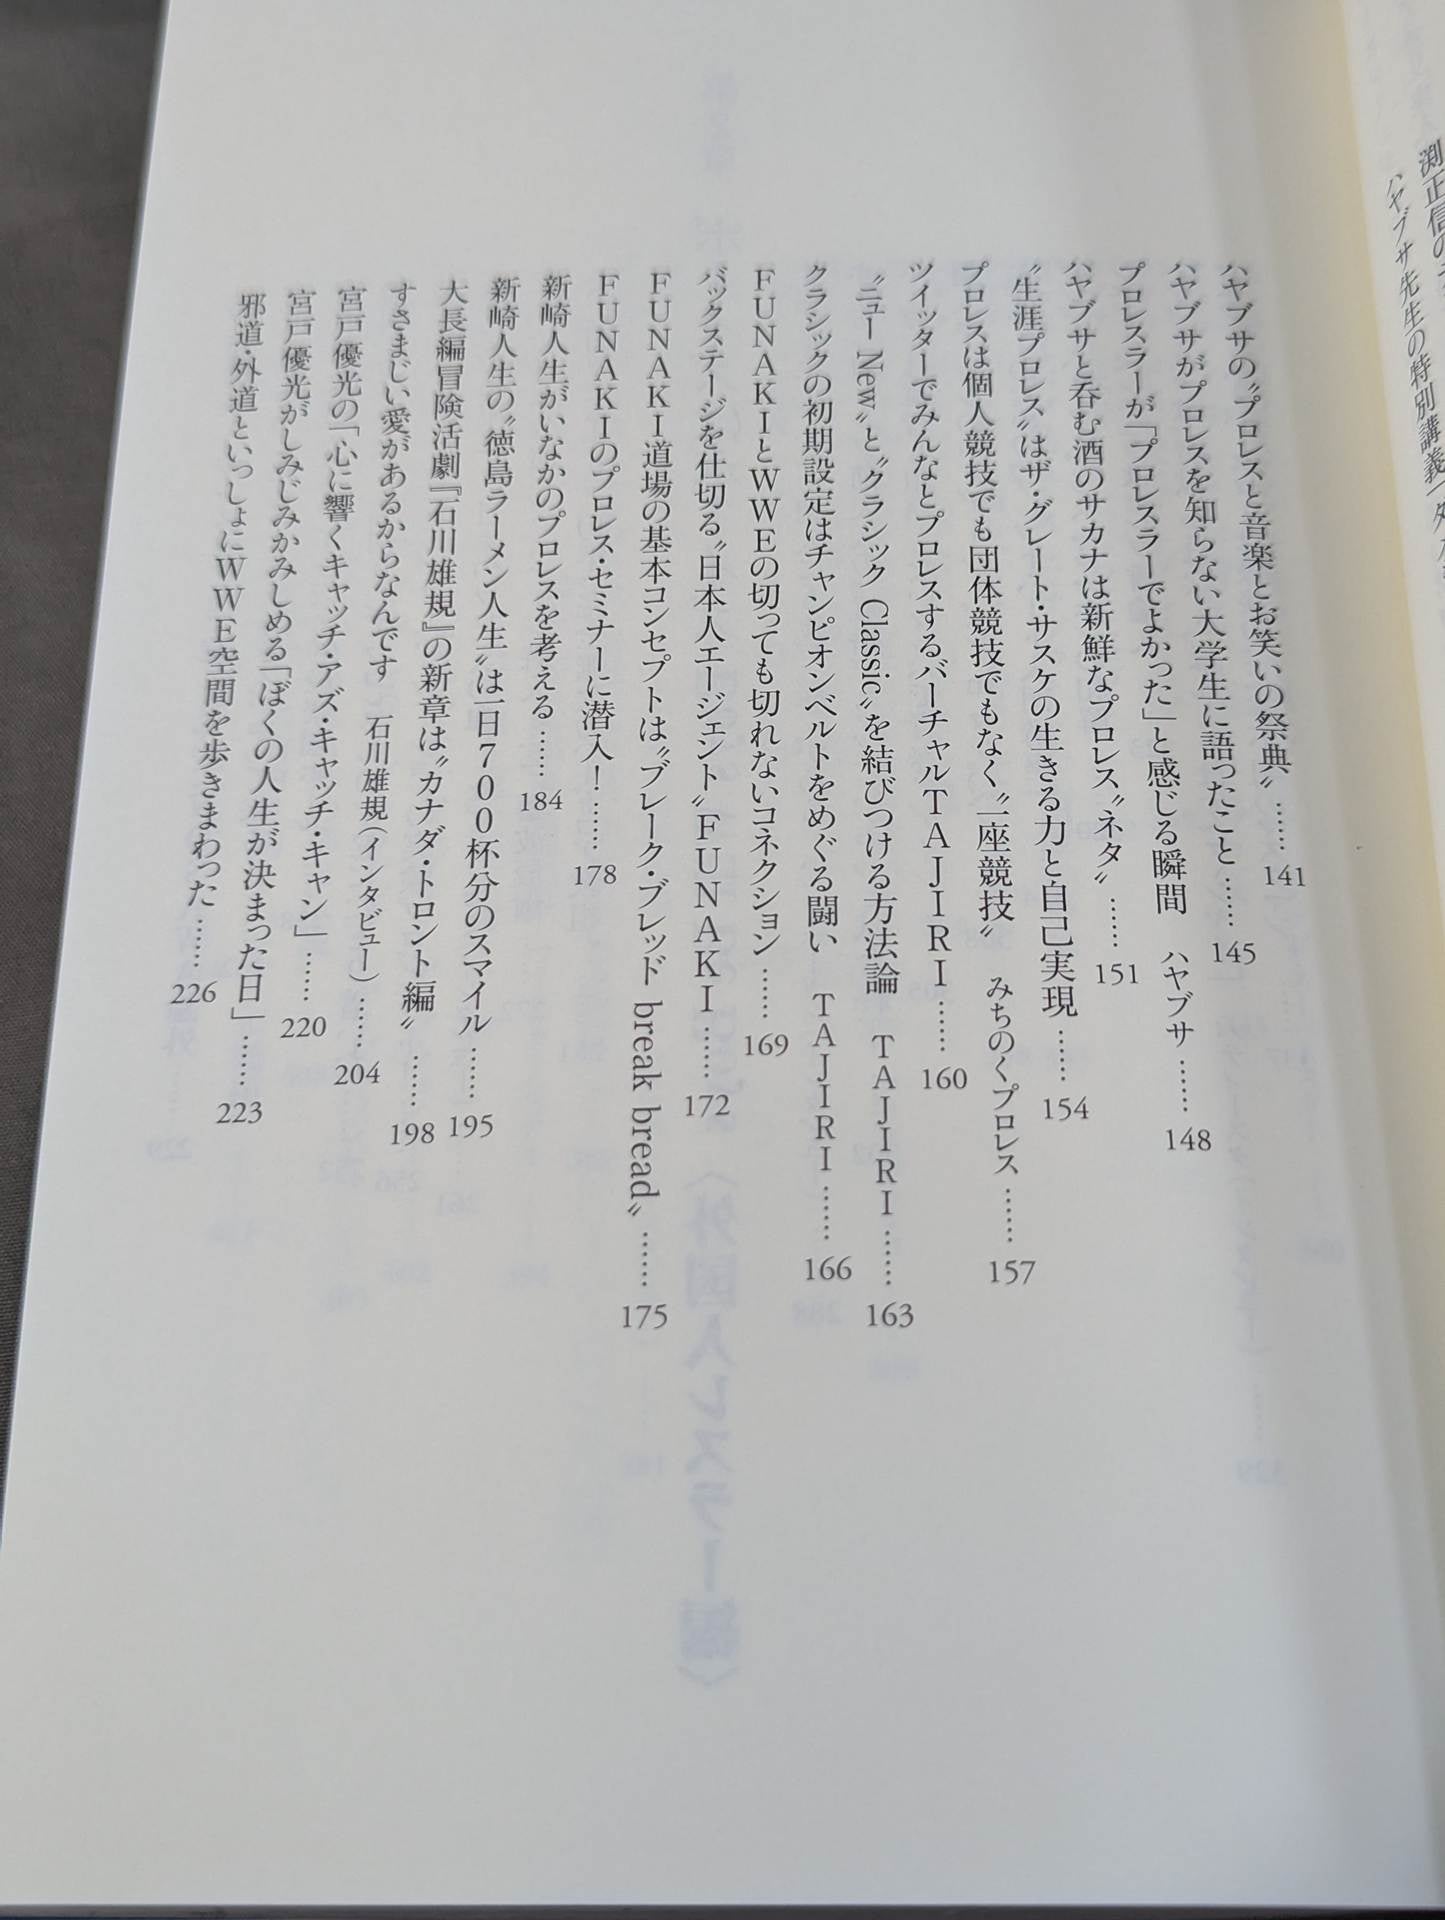 ハヤブサ先生の特別講義
ハヤブサの〝プロレスと音楽とお笑いの祭典〟……141
ハヤブサがプロレスを知らない大学生に語ったこと……145
プロレスラーが「プロレスラーでよかった」と感じる瞬間　ハヤブサ……148
ハヤブサと呑む酒のサカナは新鮮なプロレス〝ネタ〟……151
〝生涯プロレス〟はザ・グレート・サスケの生きる力と自己実現……154
プロレスは個人競技でも団体競技でもなく〝一座競技〟　みちのくプロレス……157
ツイッターでみんなとプロレスするバーチャルＴＡＪＩＲＩ……160
〝ニュー New〟と〝クラシック Classic〟を結びつける方法論　ＴＡＪＩＲＩ……163
クラシックの初期設定はチャンピオンベルトをめぐる闘い　ＴＡＪＩＲＩ……166
ＦＵＮＡＫＩとＷＷＥの切っても切れないコネクション……169
バックステージを仕切る〝日本人エージェント〟ＦＵＮＡＫＩ……172
ＦＵＮＡＫＩ道場の基本コンセプトは〝ブレーク・ブレッド break bread〟……175
ＦＵＮＡＫＩのプロレス・セミナーに潜入！……178
新崎人生がいなかのプロレスを考える……184
新崎人生の〝徳島ラーメン人生〟は一日７００杯分のスマイル……195
大長編冒険活劇『石川雄規』の新章は〝カナダ・トロント編〟……198
すさまじい愛があるからなんです　石川雄規（インタビュー）……204
宮戸優光の「心に響くキャッチ・アズ・キャッチ・キャン」……220
宮戸優光がしみじみかみしめる「ぼくの人生が決まった日」……223
邪道・外道といっしょにＷＷＥ空間を歩きまわった……226